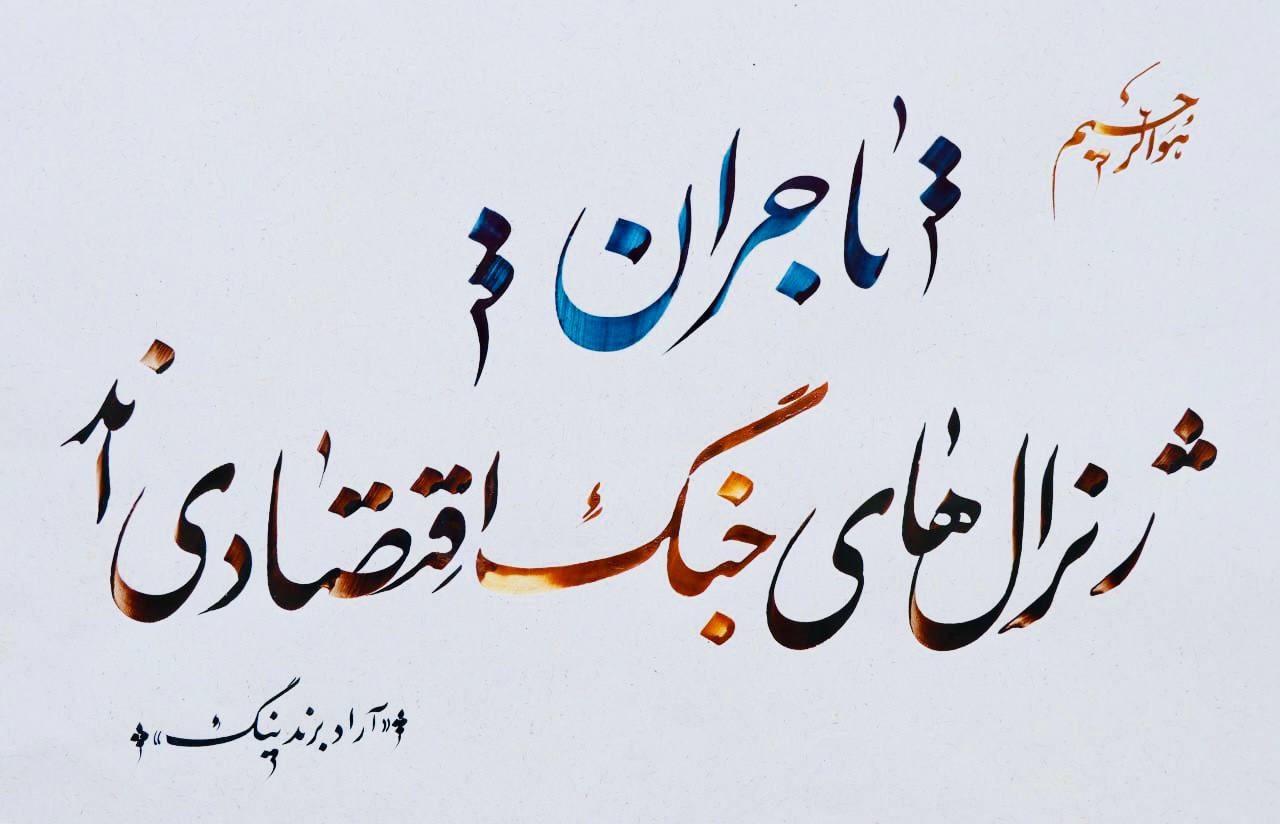 هُوَالرحیم
تاجران
ژنرال‌های جنگ اقتصادی‌اند
«آراد برندینگ»